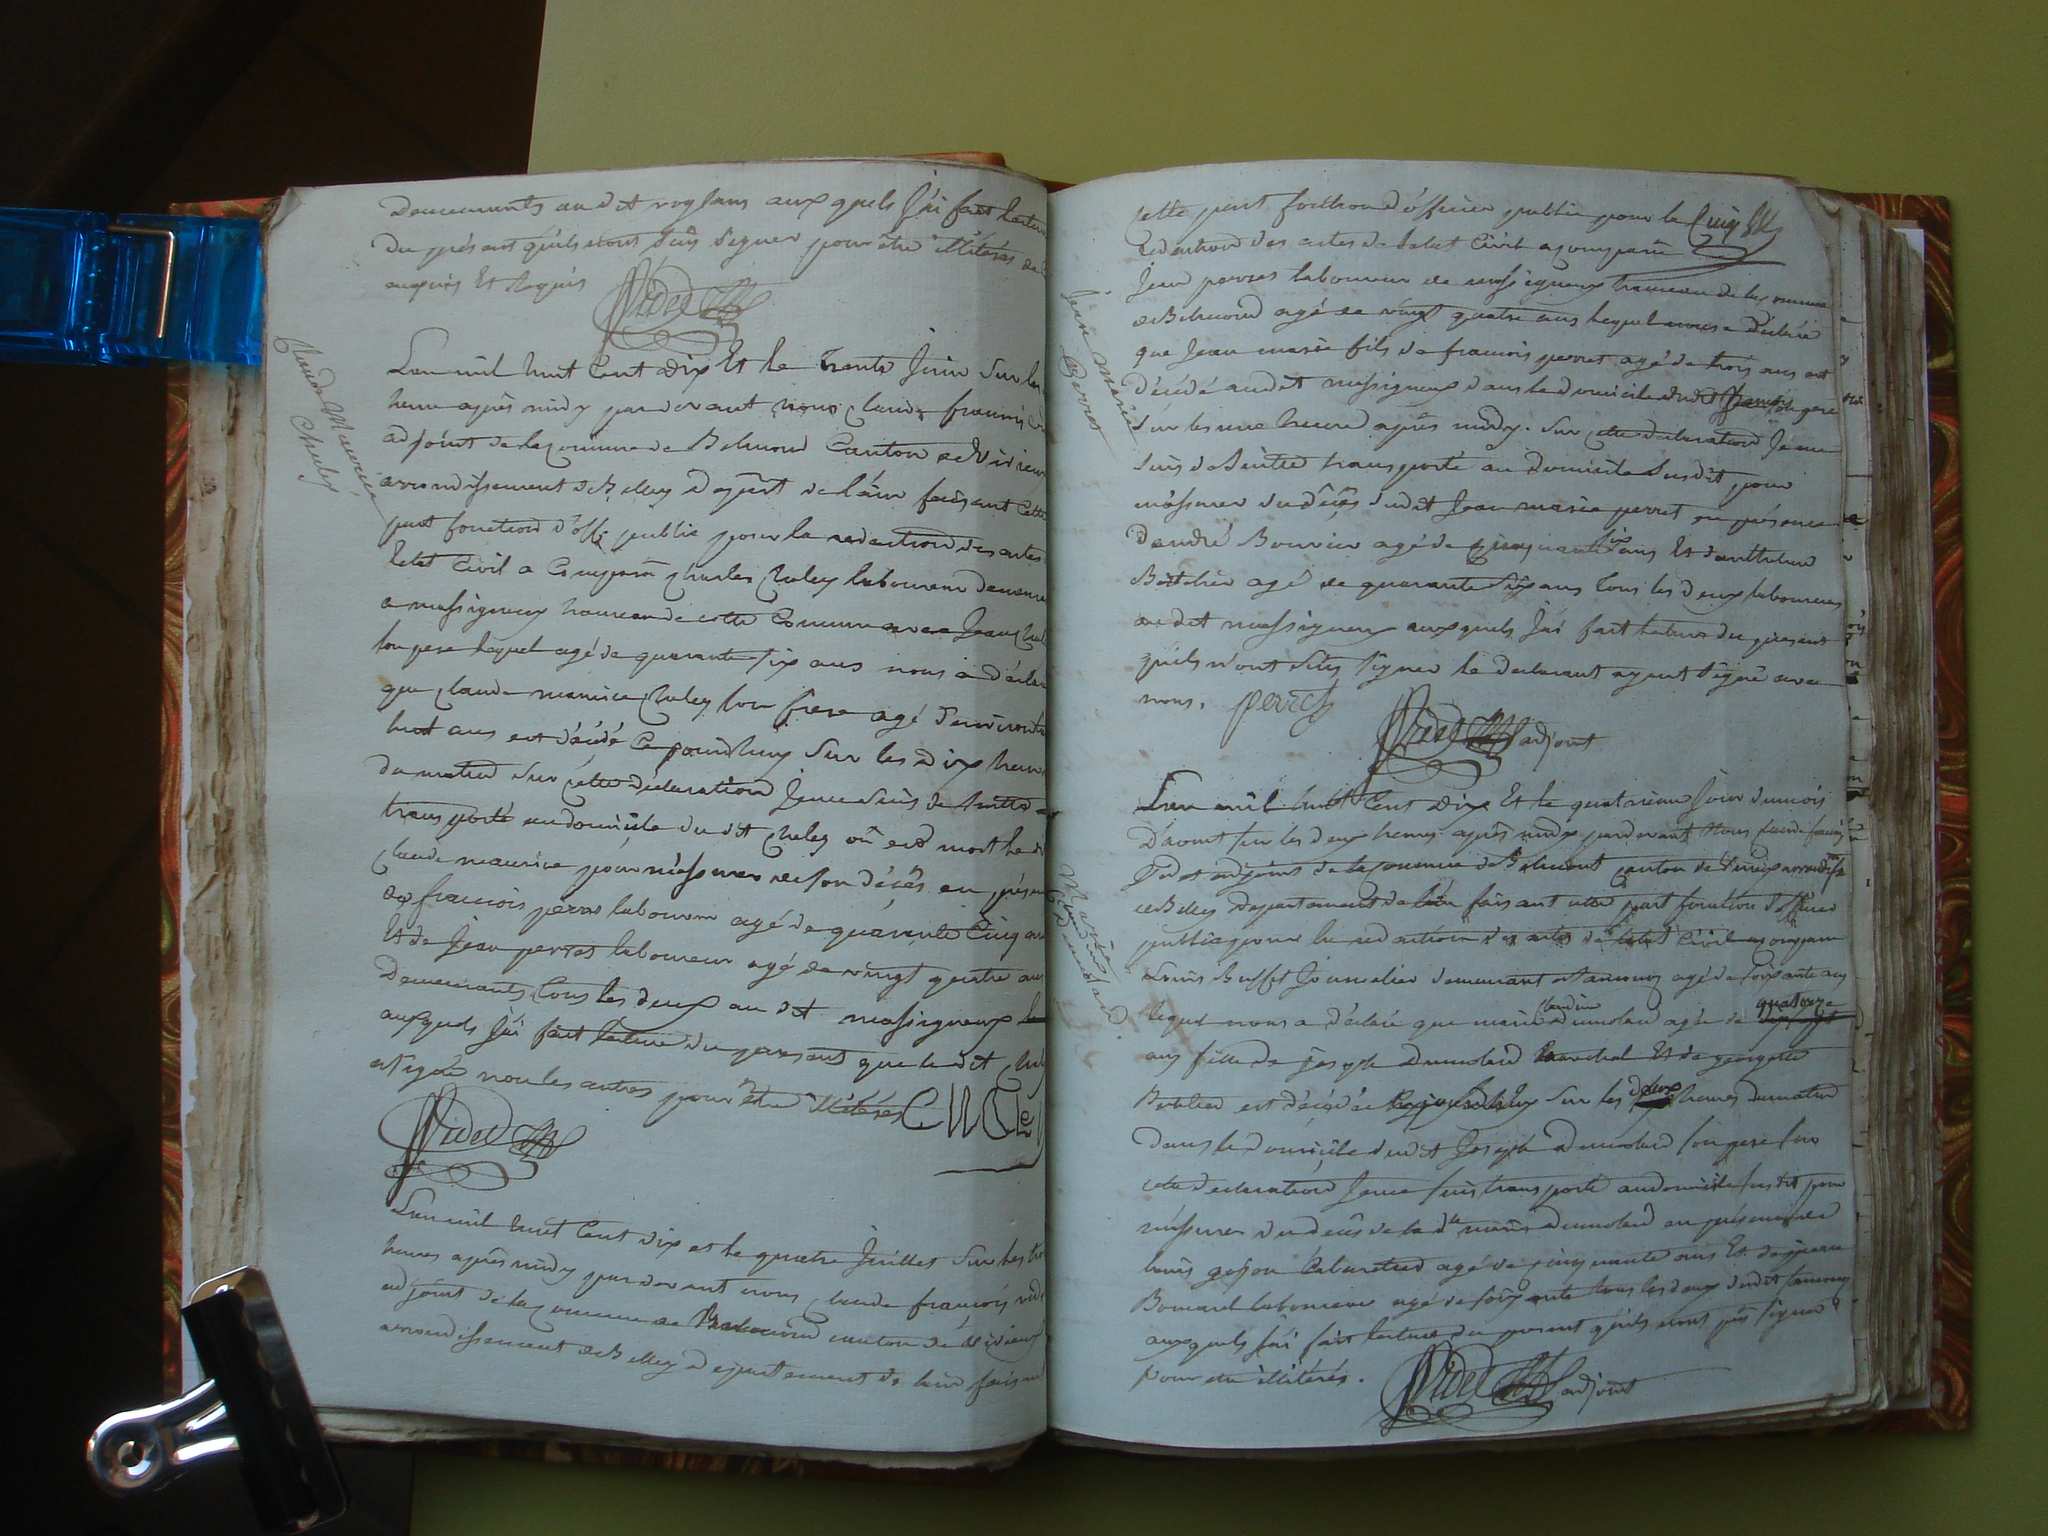 Demeurants au dit roglans aux quels J'ai fait lecture
du présant qu'ils n'ont sus signer pour être illitérés de ce
enquis Et Requis
Videt
Claude Maurice
Chuley
L'an mil huit Cent dix Et le trente Juin sur les
heure après midy pardevant nous Claude françois
adjoint de la Commune de Belmond Canton de Virieux
arrondissement de Belley départ de l'ain faisant Cette
part fonction d'off public pour la redaction des actes
letat Civil a Comparu Charles Chuley laboureur demeurant
a massigneux hameau de cette Commune Jean
son pere lequel agé de quarante six ans nous a déclaré
que Claude maurice Chuley son frere agé d'environ
huit ans est décédé Ce jourdhuy Sur les dix heures
du matin sur cette déclaration Je me suis de suitte
transporté au domicile du dit Chuley où est mort le dt
Claude maurice pour m'assurer de son décès en présence
de francois perret laboureur agé de quarante Cinq ans
Et de Jean perret laboureur agé de vingt quatre ans
Demeurants tous les deux au dit massigneux
auxquels J'ai fait lecture du present que le dit
a signé non les autres pour être illitérés
Videt
L'an mil huit Cent dix et le quatre Juillet Sur les
heures après midy par devant nous Claude françois
adjoint de la Commune de Belmond canton de Virieux
arrondissement de Belley departement de lain faisant
Cette part fonction d'officier public pour la
redaction des actes de letat Civil a comparu
Jean Marie
Perret
Jean perret laboureur de massigneux hameau de la commune
de Belmond agé de vingt quatre ans lequel nous a déclaré
que Jean marie fils de francois perret agé de trois ans est
décédé audit massigneux dans le domicile dudt françois son pere
Sur les une heure après midy. Sur cette declaration Je me
suis de suitte transporté au domicile susdit pour
m'assurer du décès dudit Jean marie perret en présence
D'andré Bouvier agé de Cinquante six ans Et d'anthelme
agé de quarante six ans tous les deux laboureurs
au dit massigneux auxquels J'ai fait lecture du présent
qu'ils n'ont Sus signer le declarant ayant signé avec
nous. perret
Videt adjoint
Marie
Claudine
Dumolard
L'an mil huit Cent dix Et le quatrieme Jour du mois
D'aout sur les deux heures après midy pardevant Nous Claude françois
Videt adjoint de la commune de Belmont canton de Virieux arrondisst
de Belley departement de lain faisant cette part fonction d'officier
public pour la redaction des actes de letat Civil a comparu
Louis Buffet Journalier demeurant a agé de soixante ans
lequel nous a déclaré que marie Claudine Dumolard agée de quatorze
ans fille de Joseph Dumolard marechal Et de georgette
est décédée Ce jourdhuy sur les deux heures du matin
dans le domicile dudit Joseph Dumolard son pere sur
cette declaration Je me suis transporté au domicile susdit pour
m'assurer du décès de la dte marie Dumolard en présence de
Louis Cabaretier agé de cinquante ans Et de
laboureur agé de soixante tous les deux dudit
auxquels J'ai fait lecture du present qu'ils n'ont pus signer
pour être illitérés.
Videt adjoint